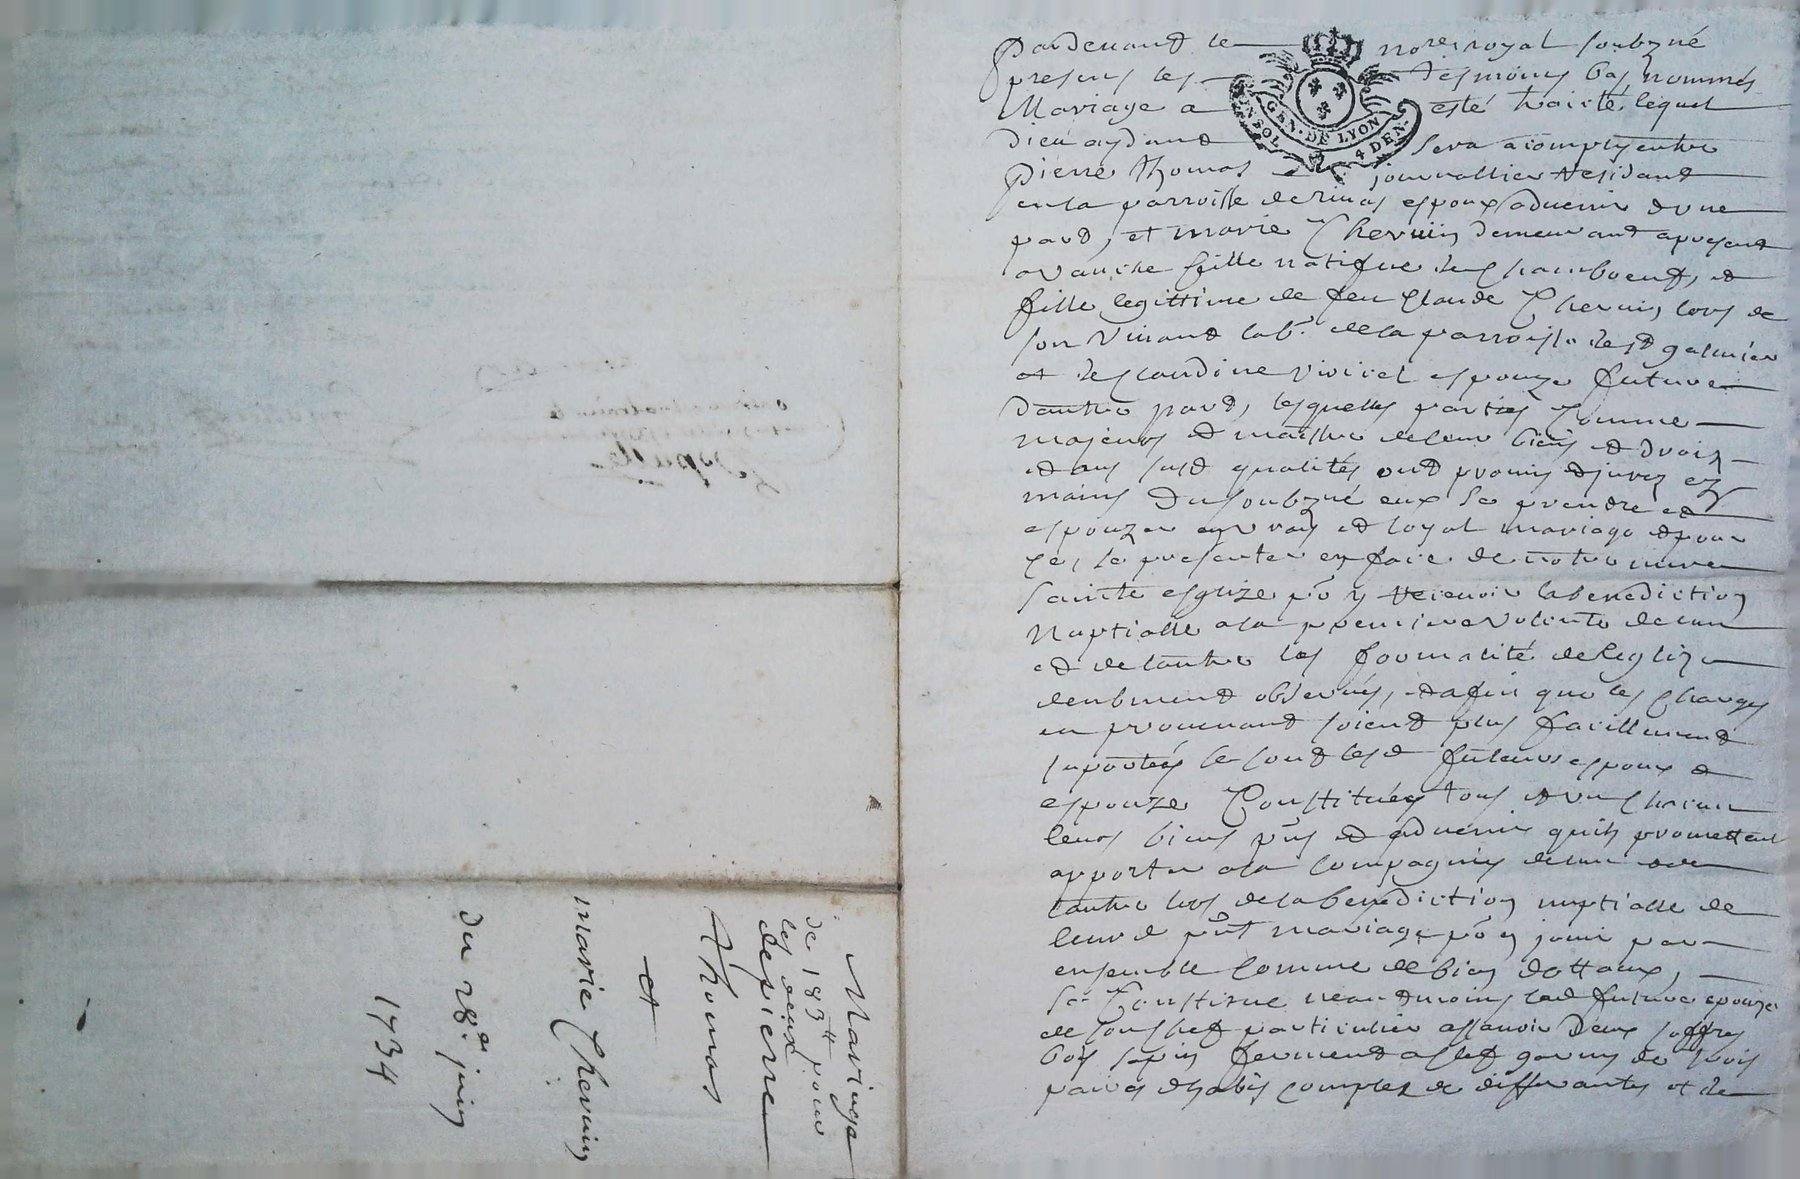 Pardevant le notre royal soubzné
presens les tesmoins bas nommés
Mariage a esté traicté lequel
Dieu aydant sera acomply entre
Pierre Thomas journallier residant
en la parroisse de rivas espoux advenir dune
part, et marie Chervin demeurant apresent
fille natifve de Chamboeuf, et
fille legittime de feu Claude Chervin lors de
son vivant labr. de la parroisse de st galmier
et de claudine espouze future
dautre part, lesquelles parties Comme
majeurs et maistre de leur biens et droits
et aus susd qualités ont promis et jurez ez
mains du soubzné eux se prendre et
espouzer en vray et loyal mariage et pour
ce, se presenter en face de notre mere
sainte esglize po y recevoir la benediction
Nuptialle a la premiere volonté de lun
et de lautre les formalité de leglize
deubment observés, et afin que les charges
en provenant soient plus facillement
suportées se sont lesd futurs espoux et
espouze Constitués tous et un chacun
leurs biens pns et advenir quils promettent
apporter a la compagnie de lun et de
lautre lors de la benediction nuptialle de
leurd pnt mariage po y jouir par
ensemble comme de bien dottaux,
se Constitue neandmoins lad future epouze
de son chef particulier assavoir Deux coffres
bois sapin fermend a clef garnis de trois
paires dhabis complet de differantes et de
GEN. DE LYON
UN SOL 4 DEN.
Mariage
de 183tt pour
les deux
de pierre
Thomas
et
marie Chervin
du 28e. juin
1734